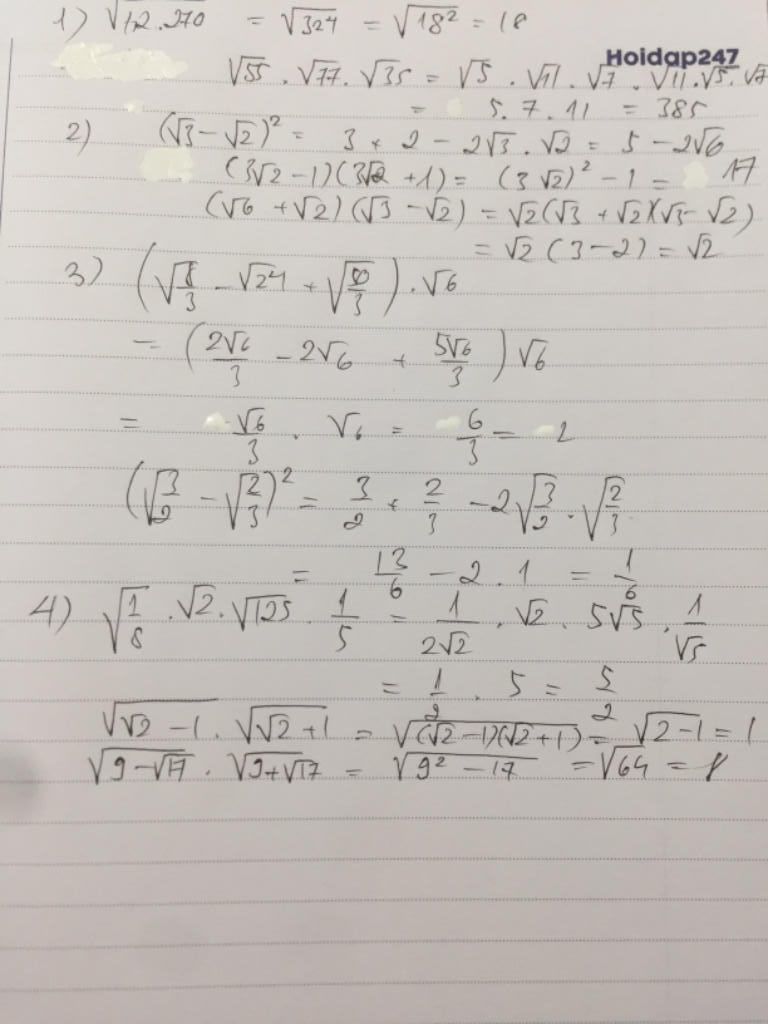 1) √1,2.270 = √324 = √18² = 18
Hoidap247
√55 . √77 . √35 = √5 . √11 . √7 . √11 . √5 . √7
= 5.7.11 = 385
2) (√3 - √2)² = 3 + 2 - 2√3 . √2 = 5 - 2√6
(3√2 - 1)(3√2 + 1) = (3√2)² - 1 = 17
(√6 + √2)(√3 - √2) = √2(√3 + √2)(√3 - √2)
= √2 (3 - 2) = √2
3) (√8/3 - √24 + √50/3) . √6
= (2√6/3 - 2√6 + 5√6/3) √6
= √6/3 . √6 = 6/3 = 2
(√3/2 - √2/3)² = 3/2 + 2/3 - 2√3/2 . √2/3
= 13/6 - 2 . 1 = 1/6
4) √1/8 . √2 . √125 . 1/5 = 1/2√2 . √2 . 5√5 . 1/√5
= 1/2 . 5 = 5/2
√√2 - 1 . √√2 + 1 = √(√2 - 1)(√2 + 1) = √2 - 1 = 1
√9 - √17 . √9 + √17 = √9² - 17 = √64 = 8